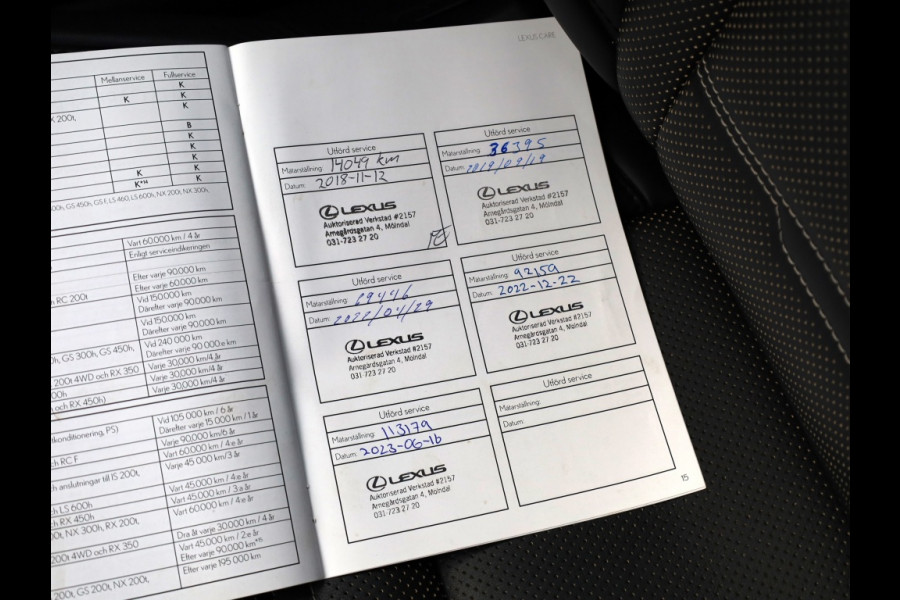 Mellanservice Fullservice
K
K K
K
200t,
B
K
K
K
K K
K*⁴⁾ K
GS 450h, GS F, LS 460, LS 600h, NX 200t, NX 300h,
Vart 60.000 km / 4 år
Enligt serviceindikeringen
Efter varje 90.000 km
Efter varje 60.000 km
RC 200t
Vid 150.000 km
Därefter varje 90.000 km
Vid 150.000 km
Därefter varje 90.000 km
GS 300h, GS 450h,
Vid 240 000 km
Därefter varje 90.000 km
200t 4WD och RX 350
Varje 30.000 km/4 år
Varje 30.000 km/4 år
och RX 450h)
Vid 105 000 km / 6 år
Därefter varje 15 000 km / 1 år
Varje 90.000 km/6 år
RC F
Vart 60.000 km / 4:e år
Varje 45 000 km/3 år
anslutningar till IS 200t,
Vart 45.000 km / 4:e år
LS 600h
Vart 45.000 km / 3:e år
RX 450h
Vart 60.000 km / 4:e år
NX 300h, RX 200t,
200t 4WD och RX 350
Dra åt varje 30.000 km / 4 år
Vart 45.000 km / 2:e år
Efter varje 90.000 km
Efter varje 195 000 km
GS 200t, NX 200t,
LEXUS CARE
Utförd service
Mätarställning: 14049 km
Datum: 2018-11-12
LEXUS
Auktoriserad Verkstad #2157
Arnegårdsgatan 4, Mölndal
031-723 27 20
Utförd service
Mätarställning: 36395
Datum: 2019/09/19
LEXUS
Auktoriserad Verkstad #2157
Arnegårdsgatan 4, Mölndal
031-723 27 20
Utförd service
Mätarställning: 69446
Datum: 2022/04/29
LEXUS
Auktoriserad Verkstad #2157
Arnegårdsgatan 4, Mölndal
031-723 27 20
Utförd service
Mätarställning: 92159
Datum: 2022-12-22
LEXUS
Auktoriserad Verkstad #2157
Arnegårdsgatan 4, Mölndal
031-723 27 20
Utförd service
Mätarställning: 113179
Datum: 2023-06-16
LEXUS
Auktoriserad Verkstad #2157
Arnegårdsgatan 4, Mölndal
031-723 27 20
Utförd service
Mätarställning:
Datum:
15